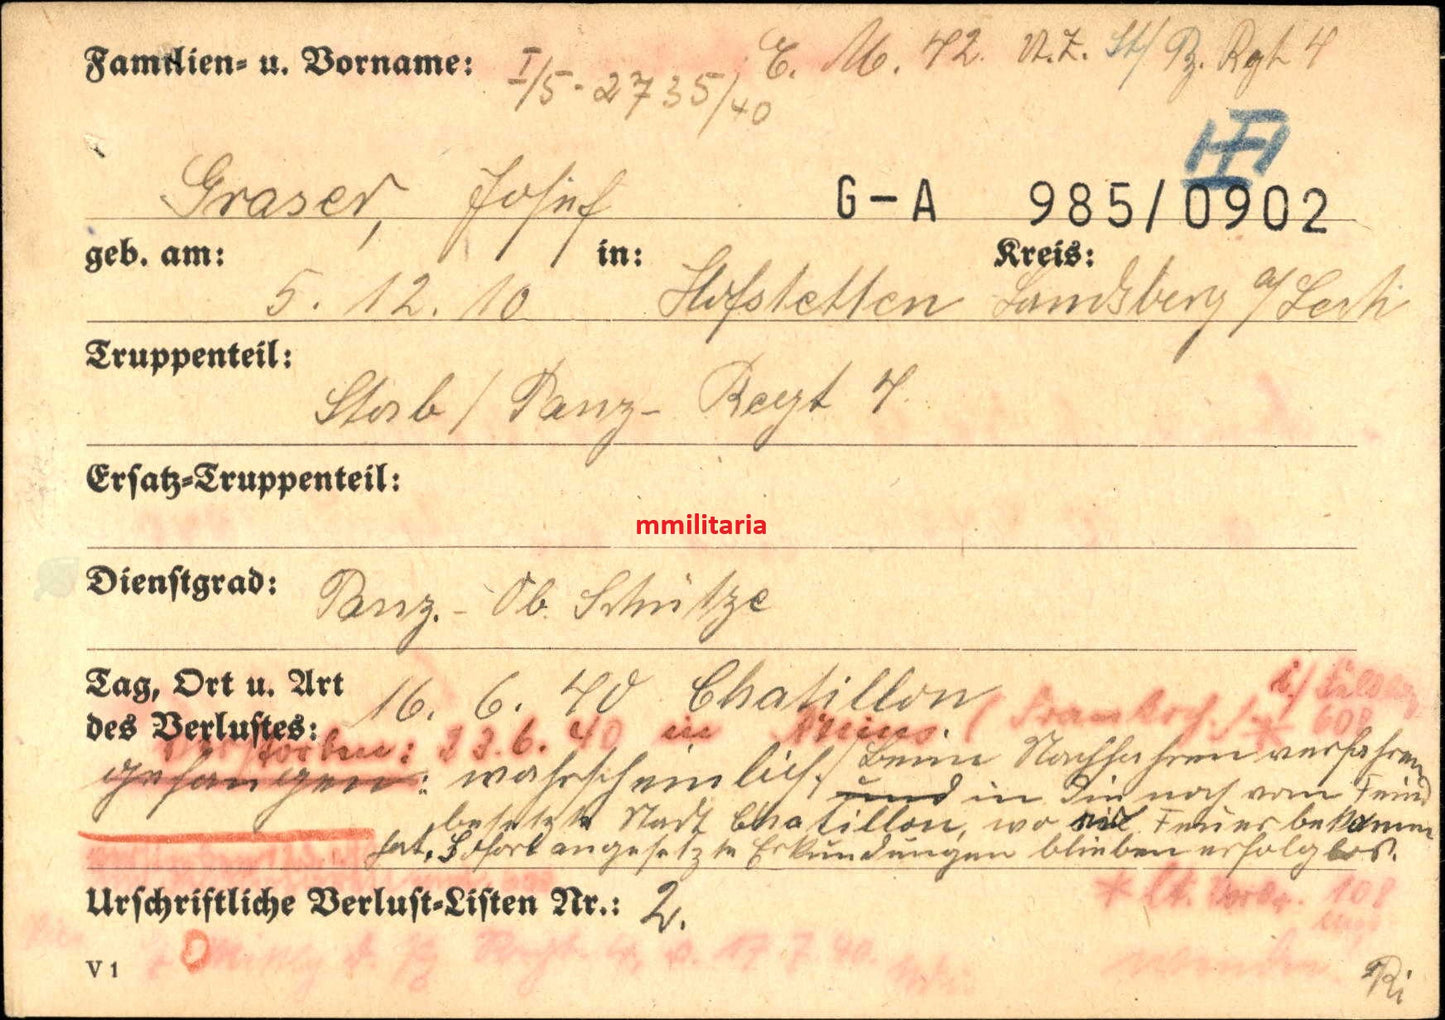 Familien- u. Vorname: I/5-2735/40 E. M. 42. St/ Pz. Rgt 4
Graser, Josef G-A 985/0902
geb. am: in: Kreis:
5. 12. 10 Hofstetten Landsberg a/Lech
Truppenteil:
Stab / Panz- Regt 4.
Ersatz-Truppenteil:
mmilitaria
Dienstgrad: Panz. - Ob. Schütze
Tag, Ort u. Art 16. 6. 40 Chatillon
des Verlustes: Verstorben: 23.6.40 in (Frankr.)
gefangen: wahrscheinlich / Beim Nachfahren verfahren
und in die noch vom Feind
besetzte Stadt Chatillon, wo sie Feuer bekommen
hat. Sofort angesetzte Erkundungen blieben erfolglos.
Urschriftliche Verlust-Listen Nr.: 2.
d. Pz Regt. 4, v. 17.7.40.
wenden
V 1
Ri